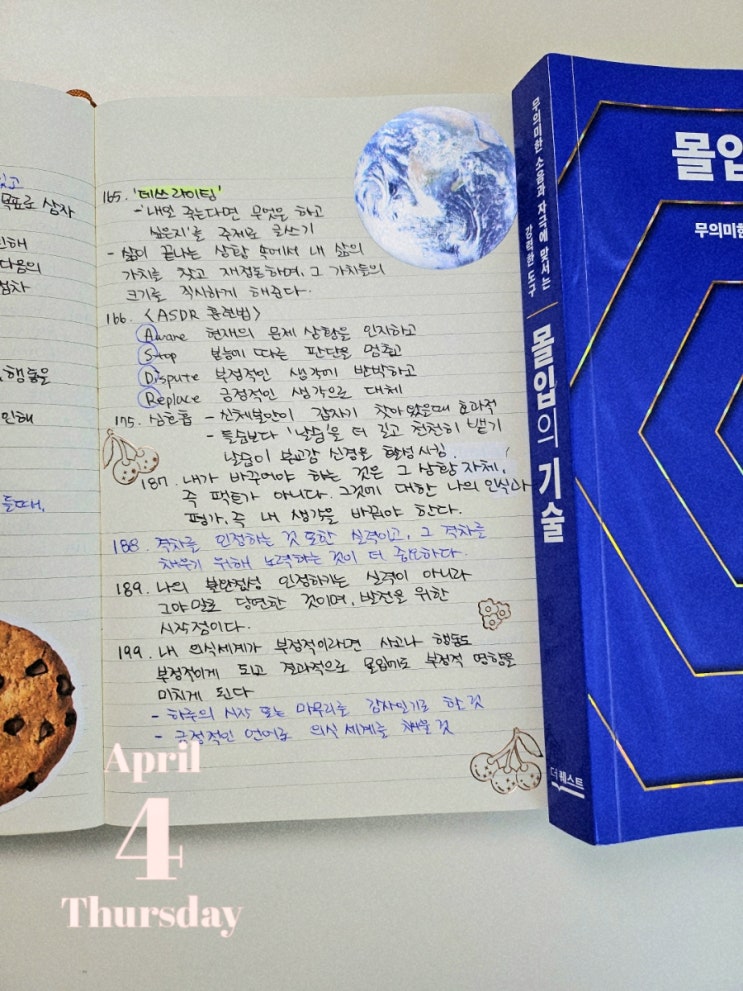 있고
목표로 삼자
인해
다음의
점차
행동을
인해
들때,
165. '데쓰라이팅'
- '내일 죽는다면 무엇을 하고
싶은지'를 주제로 글쓰기
- 삶이 끝나는 상황 속에서 내 삶의
가치를 찾고 재정돈하며, 그 가치들의
크기를 직시하게 해준다.
166. <ASDR 훈련법>
Aware 현재의 문제 상황을 인지하고
Stop 본능에 따른 판단을 멈추고
Dispute 부정적인 생각에 반박하고
Replace 긍정적인 생각으로 대체
175. 심호흡 - 신체불안이 갑자기 찾아왔을때 효과적
- 들숨보다 '날숨'을 더 길고 천천히 뱉기
날숨이 부교감 신경을 활성시킴.
187. 내가 바꾸어야 하는 것은 그 상황 자체,
즉 팩트가 아니다. 그것에 대한 나의 인식과
평가, 즉 내 생각을 바꿔야 한다.
188. 격차를 인정하는 것 또한 실력이고, 그 격차를
채우기 위해 노력하는 것이 더 중요하다.
189. 나의 불완전성 인정하기는 실력이 아니라
그야말로 당연한 것이며, 발전을 위한
시작점이다.
199. 내 의식세계가 부정적이라면 사고나 행동도
부정적이게 되고 결과적으로 몰입에도 부정적 영향을
미치게 된다
- 하루의 시작 또는 마무리를 감사일기로 할 것
- 긍정적인 언어로 의식 세계를 채울 것
무의미한 소음과 자극에 맞서는
강력한 도구
몰입의 기술
더퀘스트
몰입
무의미한
April
4
Thursday